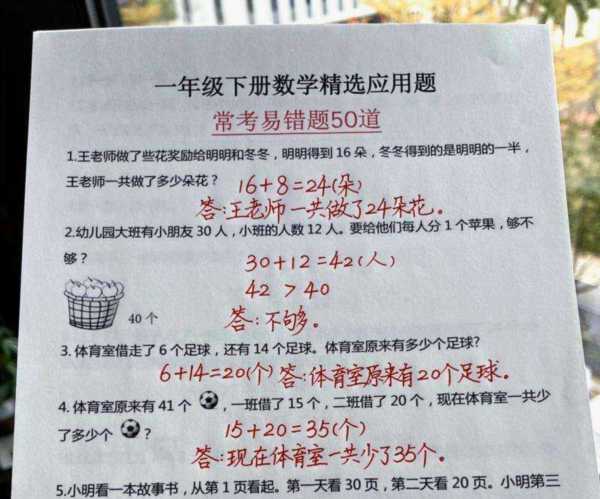 一年级下册数学精选应用题
常考易错题50道
1.王老师做了些花奖励给明明和冬冬，明明得到 16 朵，冬冬得到的是明明的一半，
王老师一共做了多少朵花？ 16+8=24(朵)
答:王老师一共做了24朵花。
2.幼儿园大班有小朋友 30 人，小班的人数 12 人。要给他们每人分 1 个苹果，够不
够？ 30+12=42(人)
42 > 40
40 个 答:不够。
3. 体育室借走了 6 个足球，还有 14 个足球。体育室原来有多少个足球？
6+14=20(个) 答:体育室原来有20个足球。
4. 体育室原来有 41 个 ，一班借了 15 个，二班借了 20 个，现在体育室一共少
了多少个 ？ 15+20=35(个)
答:现在体育室一共少了35个。
5.小明看一本故事书，从第 1 页看起。第一天看 30 页，第二天看 20 页。小明第三